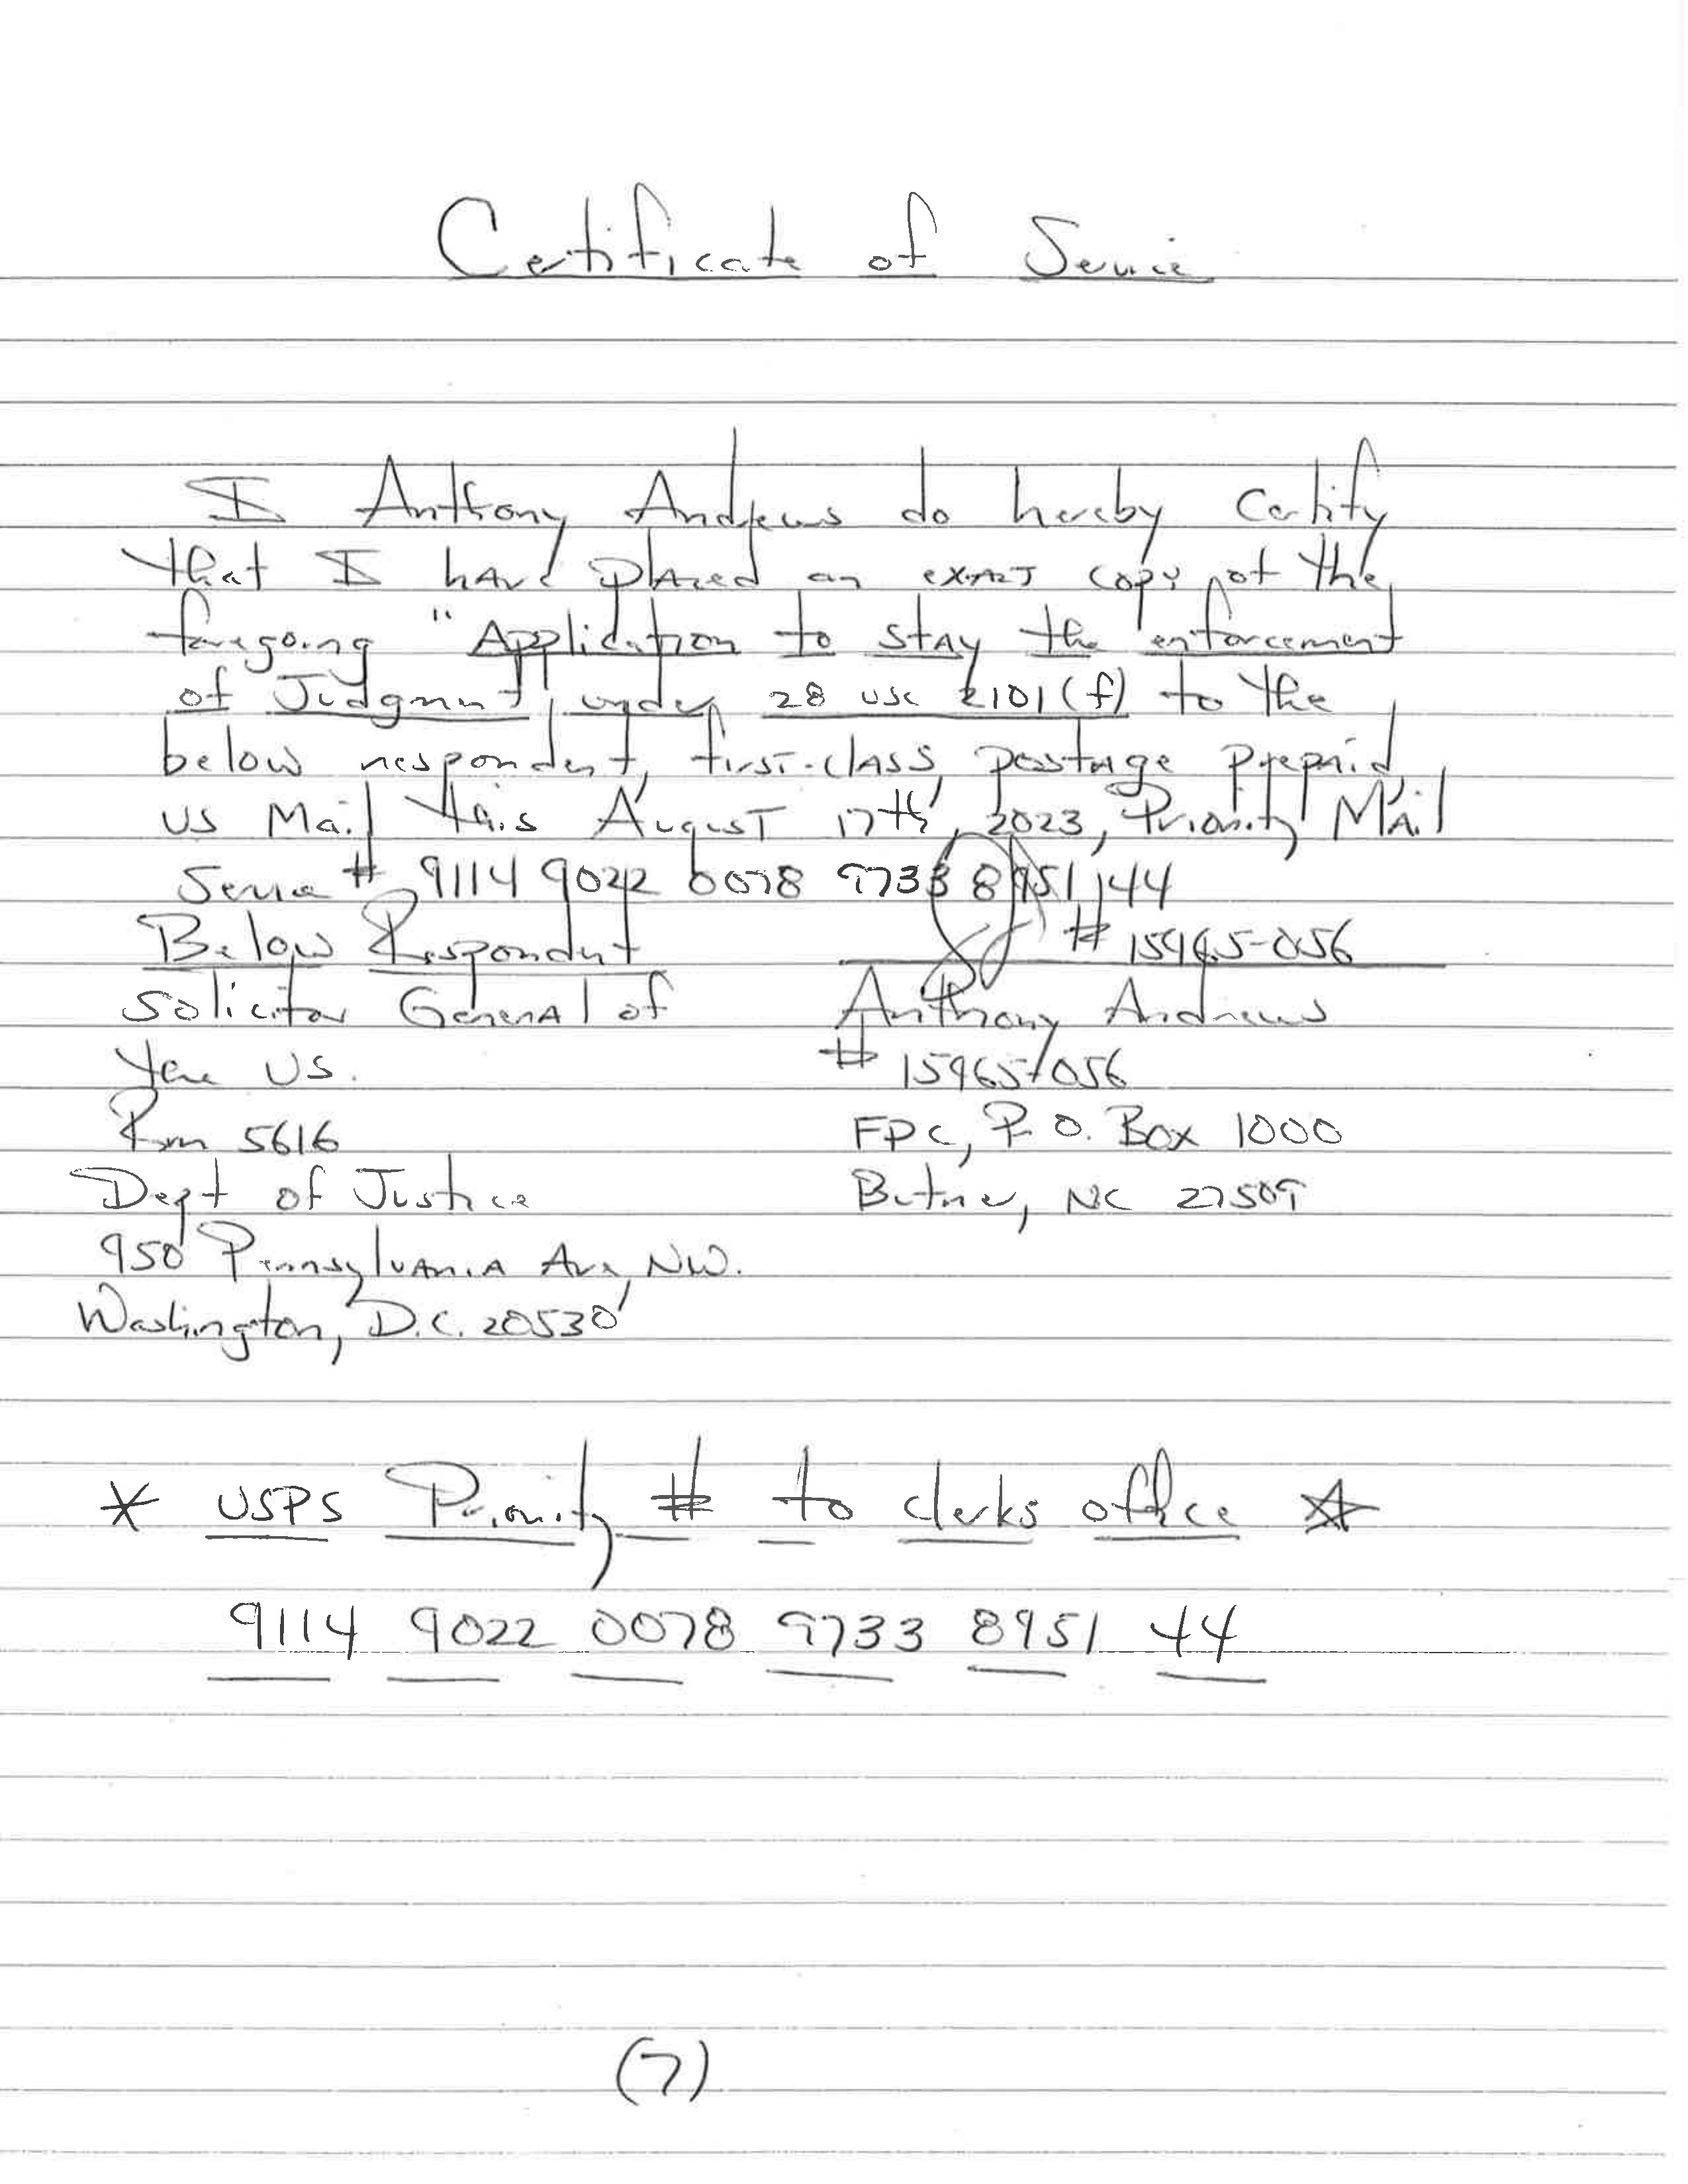 Certificate of Service
I Anthony Andrews do hereby Certify
that I have placed an exact copy of the
foregoing "Application to stay the enforcement
of Judgment" under 28 USC 2101(f) to the
below respondent, first-class, postage prepaid,
US Mail this August 17th, 2023, Priority Mail
Service # 9114 9022 0078 9733 8951 44
# 15965-056
Below Respondent
Solicitor General of
the US.
Rm 5616
Dept of Justice
950 Pennsylvania Ave, NW.
Washington, D.C. 20530
Anthony Andrews
# 15965-056
FPC, P.O. Box 1000
Butner, NC 27509
* USPS Priority # to clerks office *
9114 9022 0078 9733 8951 44
(7)